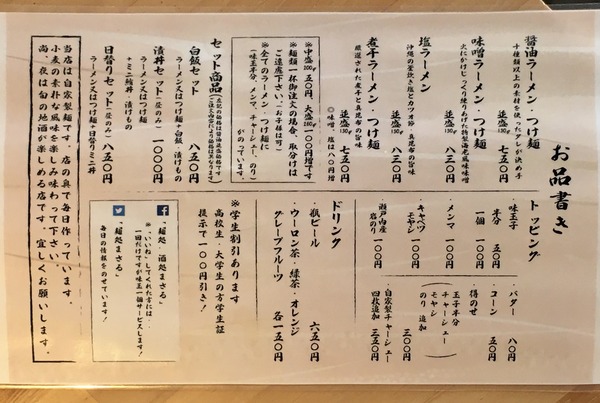 お品書き
醤油ラーメン・つけ麺
十種類以上の素材を使ったダレが決め手
並盛150g 七五〇円
味噌ラーメン・つけ麺
火にかけじっくり練りあげた特製海老風味味噌
並盛150g 八三〇円
塩ラーメン
沖縄の釜炊き塩とカツオ節、真昆布の旨味
並盛150g 八三〇円
煮干ラーメン・つけ麺
厳選された煮干と真昆布の旨味
並盛130g 七五〇円
◎味噌、塩は八〇円増
※中盛200g 五〇円、大盛300g 一〇〇円増です
※麺類一杯御注文の場合、取分けは
ご遠慮下さい。(お子様は可)
※全てのラーメン・つけ麺に
味玉半分、メンマ、チャーシュー、のり
がのっています。
セット商品
白飯セット
ラーメン又はつけ麺+白飯・漬けもの
八五〇円
漬丼セット(昼のみ)
ラーメン又はつけ麺
+ミニ鮪丼・漬けもの
一〇〇〇円
日替りセット(昼のみ)
ラーメン又はつけ麺+日替りミニ丼
八五〇円
当店は自家製麺です。店の奥で毎日作っています。
小麦の素朴な風味を楽しみ味わって下さい。
尚、夜は旬の地酒を楽しめる店です。宜しくお願いします。
トッピング
・味玉子
半分 五〇円
一個 一〇〇円
・メンマ 一〇〇円
・キャベツ
モヤシ 一〇〇円
・瀬戸内産
岩のり 一〇〇円
・バター 八〇円
・コーン 五〇円
・得のせ
玉子半分
チャーシュー
モヤシ
のり 追加
三〇〇円
・自家製チャーシュー
四枚追加 三五〇円
ドリンク
・瓶ビール 六五〇円
・ウーロン茶・緑茶・オレンジ
グレープフルーツ 各一五〇円
※学生割引あります
高校生・大学生の方学生証
提示で一〇〇円引き!
「麺処・酒処まさる」
※「いいね」してくれた方には、
一回だけですが味玉一個サービスします!
「麺処まさる」
毎日の情報をのせています!